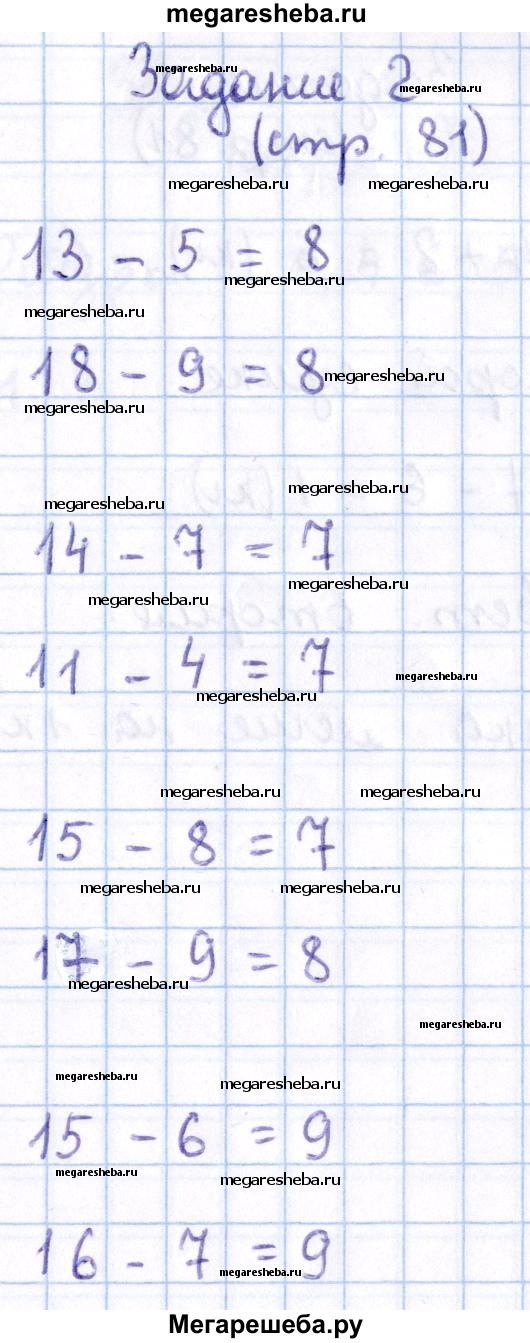 megaresheba.ru
Задание 2
megaresheba.ru megaresheba.ru
(стр. 81)
megaresheba.ru megaresheba.ru
13 - 5 = 8
megaresheba.ru
megaresheba.ru
18 - 9 = 8
megaresheba.ru
megaresheba.ru
megaresheba.ru
megaresheba.ru
14 - 7 = 7
megaresheba.ru
megaresheba.ru
11 - 4 = 7
megaresheba.ru
megaresheba.ru
megaresheba.ru megaresheba.ru
15 - 8 = 7
megaresheba.ru megaresheba.ru
17 - 9 = 8
megaresheba.ru
megaresheba.ru
megaresheba.ru megaresheba.ru
15 - 6 = 9
megaresheba.ru megaresheba.ru
16 - 7 = 9
megaresheba.ru
Мегарешеба.ру